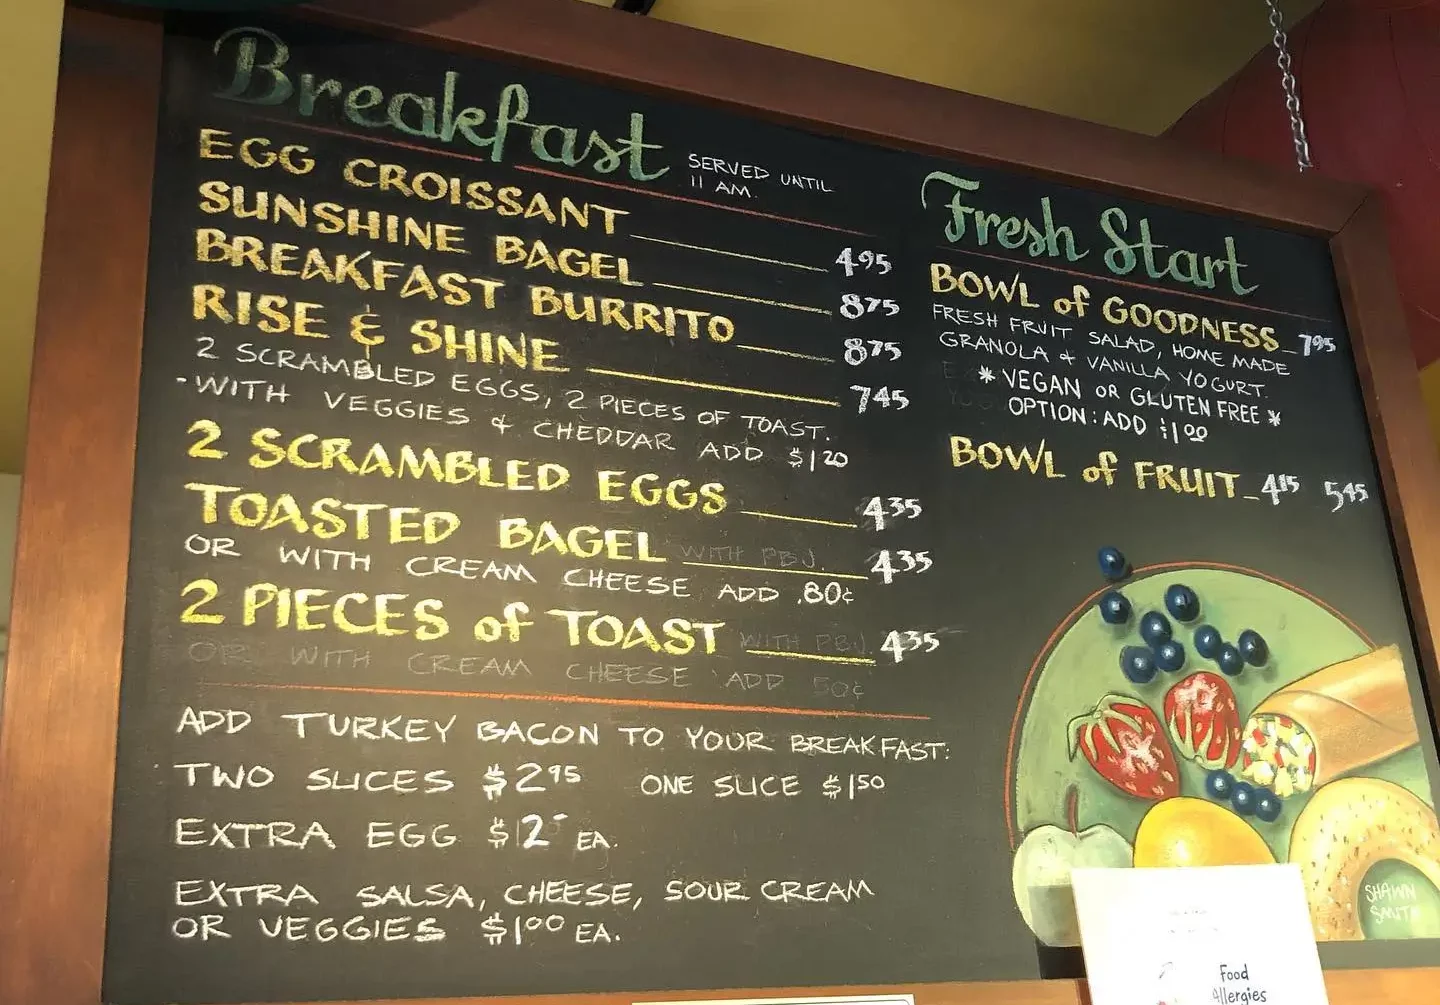 Breakfast SERVED UNTIL
11 AM.
EGG CROISSANT 4.95
SUNSHINE BAGEL 8.75
BREAKFAST BURRITO 8.75
RISE & SHINE 7.45
2 SCRAMBLED EGGS, 2 PIECES OF TOAST.
·WITH VEGGIES & CHEDDAR ADD $1.20
2 SCRAMBLED EGGS 4.35
TOASTED BAGEL WITH PBJ. 4.35
OR WITH CREAM CHEESE ADD .80¢
2 PIECES of TOAST WITH PBJ. 4.35
OR WITH CREAM CHEESE ADD 50¢
ADD TURKEY BACON TO YOUR BREAKFAST:
TWO SLICES $2.95 ONE SLICE $1.50
EXTRA EGG EA.
EXTRA SALSA, CHEESE, SOUR CREAM
OR VEGGIES $1.00 EA.
Fresh Start
BOWL of GOODNESS 7.95
FRESH FRUIT SALAD, HOME MADE
GRANOLA & VANILLA YOGURT.
* VEGAN OR GLUTEN FREE *
OPTION: ADD $1.00
BOWL of FRUIT 4.15 5.45
SHAWN
SMITH
Food
Allergies